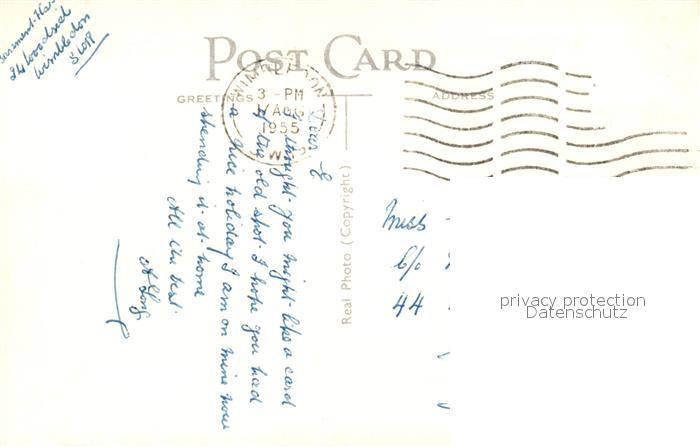 24 Woodside
Wimbledon
SW19
POST CARD
GREETINGS
ADDRESS
WIMBLEDON
3 - PM
AUG
1955
S.W.19
Dear E
I thought you might like a card
of the old spot. I hope you had
a nice holiday I am on mine now
spending it at home
All the best
A Long
Real Photo (Copyright)
Miss
C/o
44
privacy protection
Datenschutz